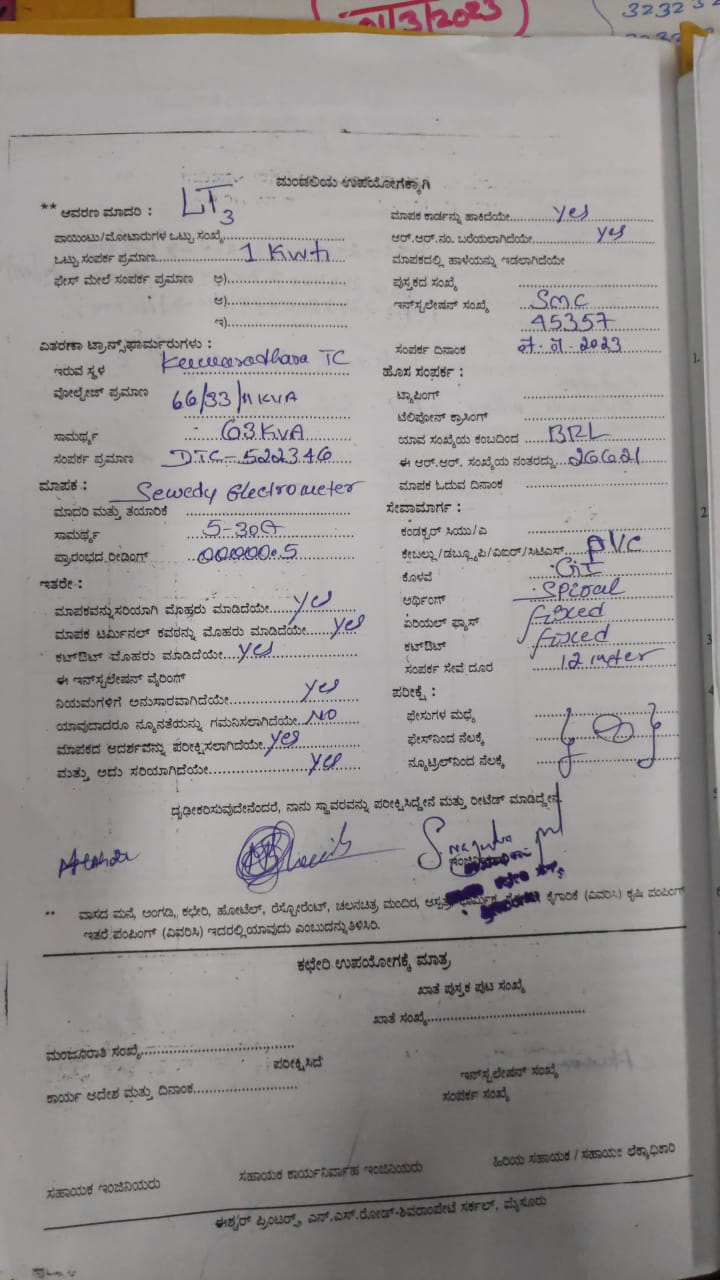 01/3/2023
32323
ಮಂಡಲಿಯ ಉಪಯೋಗಕ್ಕಾಗಿ
** ಆವರಣ ಮಾದರಿ : LT3
ಪಾಯಿಂಟು/ಮೋಟಾರುಗಳ ಒಟ್ಟು ಸಂಖ್ಯೆ
ಒಟ್ಟು ಸಂಪರ್ಕ ಪ್ರಮಾಣ 1 Kwh
ಫೇಸ್ ಮೇಲೆ ಸಂಪರ್ಕ ಪ್ರಮಾಣ ಅ)
ಆ)
ಇ)
ವಿತರಣಾ ಟ್ರಾನ್ಸ್‌ಫಾರ್ಮರುಗಳು :
ಇರುವ ಸ್ಥಳ Kumaradhara TC
ವೋಲ್ಟೇಜ್ ಪ್ರಮಾಣ 66/33/11 KVA
ಸಾಮರ್ಥ್ಯ 63 KVA
ಸಂಪರ್ಕ ಪ್ರಮಾಣ DTC-522346
ಮಾಪಕ : Sewedy Electrometer
ಮಾದರಿ ಮತ್ತು ತಯಾರಿಕೆ
ಸಾಮರ್ಥ್ಯ 5-30A
ಪ್ರಾರಂಭದ ರೀಡಿಂಗ್ 000000.5
ಇತರೇ :
ಮಾಪಕವನ್ನು ಸರಿಯಾಗಿ ಮೊಹರು ಮಾಡಿದೆಯೇ yes
ಮಾಪಕ ಟರ್ಮಿನಲ್ ಕವರನ್ನು ಮೊಹರು ಮಾಡಿದೆಯೇ yes
ಕಟ್‌ಔಟ್ ಮೊಹರು ಮಾಡಿದೆಯೇ yes
ಈ ಇನ್‌ಸ್ಟಲೇಷನ್ ವೈರಿಂಗ್
ನಿಯಮಗಳಿಗೆ ಅನುಸಾರವಾಗಿದೆಯೇ yes
ಯಾವುದಾದರೂ ನ್ಯೂನತೆಯನ್ನು ಗಮನಿಸಲಾಗಿದೆಯೇ NO
ಮಾಪಕದ ಆದರ್ಶವನ್ನು ಪರೀಕ್ಷಿಸಲಾಗಿದೆಯೇ yes
ಮತ್ತು ಅದು ಸರಿಯಾಗಿದೆಯೇ yes
ಮಾಪಕ ಕಾರ್ಡನ್ನು ಹಾಕಿದೆಯೇ yes
ಆರ್.ಆರ್.ನಂ. ಬರೆಯಲಾಗಿದೆಯೇ yes
ಮಾಪಕದಲ್ಲಿ ಹಾಳೆಯನ್ನು ಇಡಲಾಗಿದೆಯೇ
ಪುಸ್ತಕದ ಸಂಖ್ಯೆ
ಇನ್‌ಸ್ಟಲೇಷನ್ ಸಂಖ್ಯೆ SMC
45357
ಸಂಪರ್ಕ ದಿನಾಂಕ 2023
ಹೊಸ ಸಂಪರ್ಕ :
ಟ್ಯಾಪಿಂಗ್
ಟೆಲಿಫೋನ್ ಕ್ರಾಸಿಂಗ್
ಯಾವ ಸಂಖ್ಯೆಯ ಕಂಬದಿಂದ BRL
ಈ ಆರ್.ಆರ್. ಸಂಖ್ಯೆಯ ನಂತರದ್ದು 26621
ಮಾಪಕ ಓದುವ ದಿನಾಂಕ
ಸೇವಾಮಾರ್ಗ :
ಕಂಡಕ್ಟರ್ ಸಿಯು/ಎ
ಕೇಬಲ್ಲು/ಡಬ್ಲ್ಯೂಪಿ/ವಿಐಆರ್/ಸಿಟಿಎಸ್ PVC
ಕೊಳವೆ GI
ಅರ್ಥಿಂಗ್ Spiral
ಏರಿಯಲ್ ಫ್ಯೂಸ್ fixed
ಕಟ್‌ಔಟ್ fixed
ಸಂಪರ್ಕ ಸೇವೆ ದೂರ 12 meter
ಪರೀಕ್ಷೆ :
ಫೇಸುಗಳ ಮಧ್ಯೆ
ಫೇಸ್‌ನಿಂದ ನೆಲಕ್ಕೆ
ನ್ಯೂಟ್ರಲ್‌ನಿಂದ ನೆಲಕ್ಕೆ
ದೃಢೀಕರಿಸುವುದೇನೆಂದರೆ, ನಾನು ಸ್ಥಾವರವನ್ನು ಪರೀಕ್ಷಿಸಿದ್ದೇನೆ ಮತ್ತು ರೀಟೆಡ್ ಮಾಡಿದ್ದೇನೆ.
** ವಾಸದ ಮನೆ, ಅಂಗಡಿ, ಕಛೇರಿ, ಹೋಟೆಲ್, ರೆಸ್ಟೋರೆಂಟ್, ಚಲನಚಿತ್ರ ಮಂದಿರ, ಆಸ್ಪತ್ರೆ, ಧಾರ್ಮಿಕ, ಕೈಗಾರಿಕೆ (ವಿವರಿಸಿ) ಕೃಷಿ ಪಂಪಿಂಗ್
ಇತರೆ ಪಂಪಿಂಗ್ (ವಿವರಿಸಿ) ಇದರಲ್ಲಿ ಯಾವುದು ಎಂಬುದನ್ನು ತಿಳಿಸಿರಿ.
ಕಛೇರಿ ಉಪಯೋಗಕ್ಕೆ ಮಾತ್ರ
ಖಾತೆ ಪುಸ್ತಕ ಪುಟ ಸಂಖ್ಯೆ
ಖಾತೆ ಸಂಖ್ಯೆ
ಮಂಜೂರಾತಿ ಸಂಖ್ಯೆ
ಪರೀಕ್ಷಿಸಿದೆ
ಕಾರ್ಯ ಆದೇಶ ಮತ್ತು ದಿನಾಂಕ
ಇನ್‌ಸ್ಟಲೇಷನ್ ಸಂಖ್ಯೆ
ಸಂಪರ್ಕ ಸಂಖ್ಯೆ
ಸಹಾಯಕ ಇಂಜಿನಿಯರು
ಸಹಾಯಕ ಕಾರ್ಯನಿರ್ವಾಹ ಇಂಜಿನಿಯರು
ಹಿರಿಯ ಸಹಾಯಕ / ಸಹಾಯಕ ಲೆಕ್ಕಾಧಿಕಾರಿ
ಈಶ್ವರ್ ಪ್ರಿಂಟರ್ಸ್, ಎನ್.ಎಸ್.ರೋಡ್-ಶಿವರಾಂಪೇಟೆ ಸರ್ಕಲ್, ಮೈಸೂರು